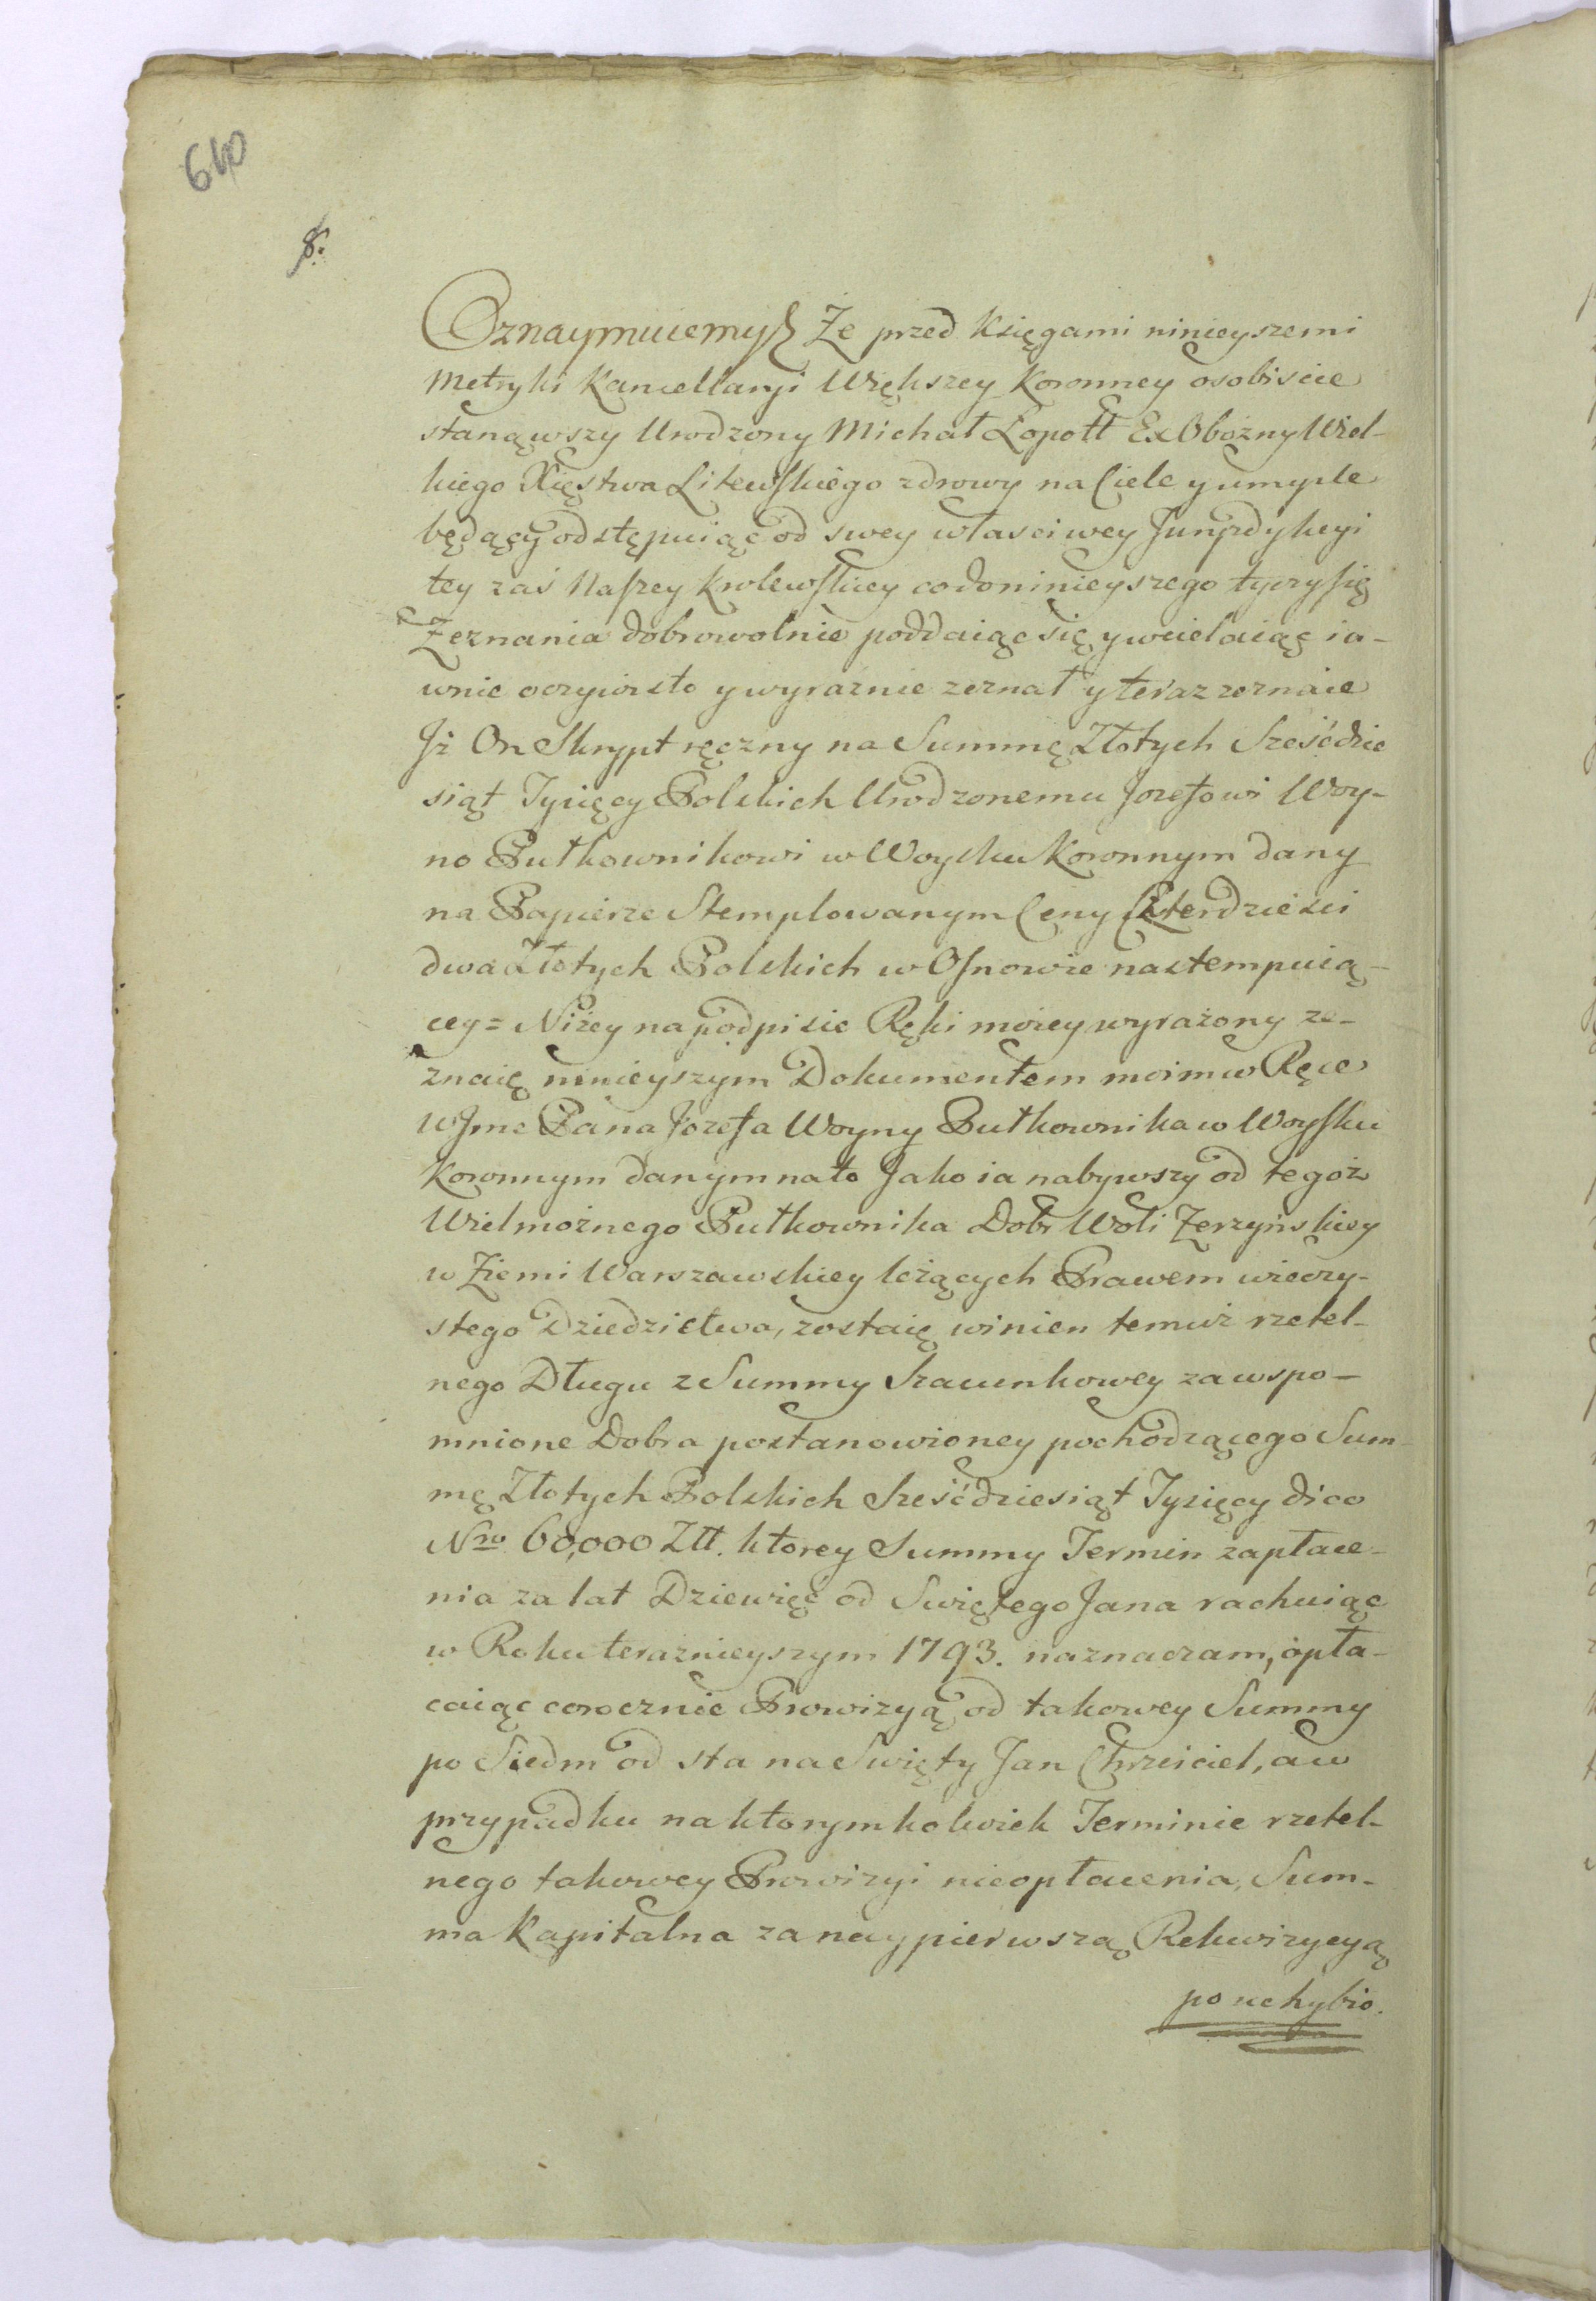 640
8.
Oznaymuiemy Że przed Księgami ninieyszemi
Metryki Kancellaryi Większey Koronney osobiscie
stanąwszy Urodzony Michał Łopott Ex Obożny Wiel-
kiego Xięstwa Litewskiego zdrowy na Ciele y umysle
będący odstępuiąc od swey własciwey Juryzdykcyi
tey zaś Naszey Krolewskiey co do ninieyszego tyczy się
Zeznania dobrowolnie poddaiąc się y wcielaiąc ia-
wnie oczywisto y wyraznie zeznał y teraz zeznaie
Jż On Skrypt ręczny na Summę Złotych Sześćdzie
siąt Tysięcy Polskich Urodzonemu Jozefowi Woy-
no Pułkownikowi w Woysku Koronnym dany
na Papierze Stemplowanym Ceny Czterdzieści
dwa Złotych Polskich w Osnowie nastempuią-
cey = Niżey na podpisie Ręki moiey wyrażony ze-
znaię ninieyszym Dokumentem moim w Ręce
WJmc Pana Jozefa Woyny Pułkownika w Woysku
Koronnym danym na to Jako ia nabywszy od tegoż
Wielmożnego Pułkownika Dobr Woli Zerzyńskiey
w Ziemi Warszawskiey leżących Prawem wieczy-
stego Dziedzictwa, zostaię winien temuż rzetel-
nego Długu z Summy Szacunkowey za wspo-
mnione Dobra postanowioney pochodzącego Sum-
mę Złotych Polskich Sześćdziesiąt Tysięcy dico
Nro 60,000 Złł. ktorey Summy Termin zapłace-
nia za lat Dziewięć od Swiętego Jana rachuiąc
w Roku teraznieyszym 1793. naznaczam, opła-
caiąc corocznie Prowizyą od takowey Summy
po Siedm od sta na Swięty Jan Chrzciciel, a w
przypadku na ktorymkolwiek Terminie rzetel-
nego takowey Prowizyi nieopłacenia, Sum-
ma Kapitalna za naypierwszą Rekwizycyą
po uchybio.